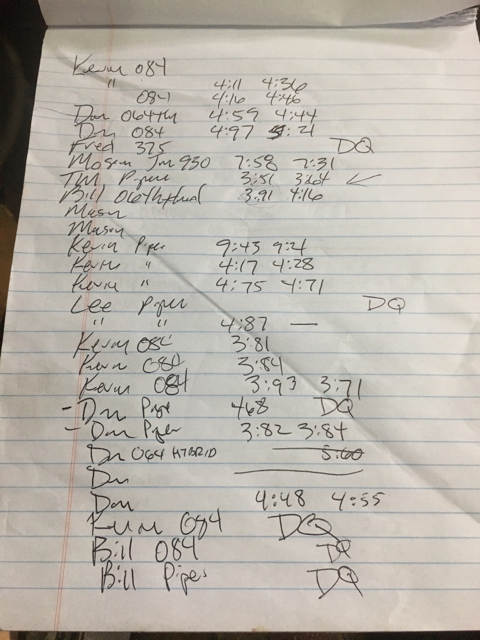 Kevin 084
" 4:11 4:36
084 4:16 4:46
Dan 064 4:59 4:44
Dan 084 4:97 5:21
Fred 375 DQ
Mason Jm 930 7:58 7:31
TM Piper 3:51 3:64 ←
Bill 064 3:91 4:16
Mason
Mason
Kevin Piper 9:43 9:21
Kevin " 4:17 4:28
Kevin " 4:75 4:71
Lee Piper DQ
" " 4:87 —
Kevin 084 3:81
Kevin 084 3:84
Kevin 084 3:93 3:71
- Dan Pipe 468 DQ
- Dan Piper 3:82 3:84
Dan 064 HYBRID 5:60
Dan
Dan 4:48 4:55
Kevin 084 DQ
Bill 084 DQ
Bill Piper DQ